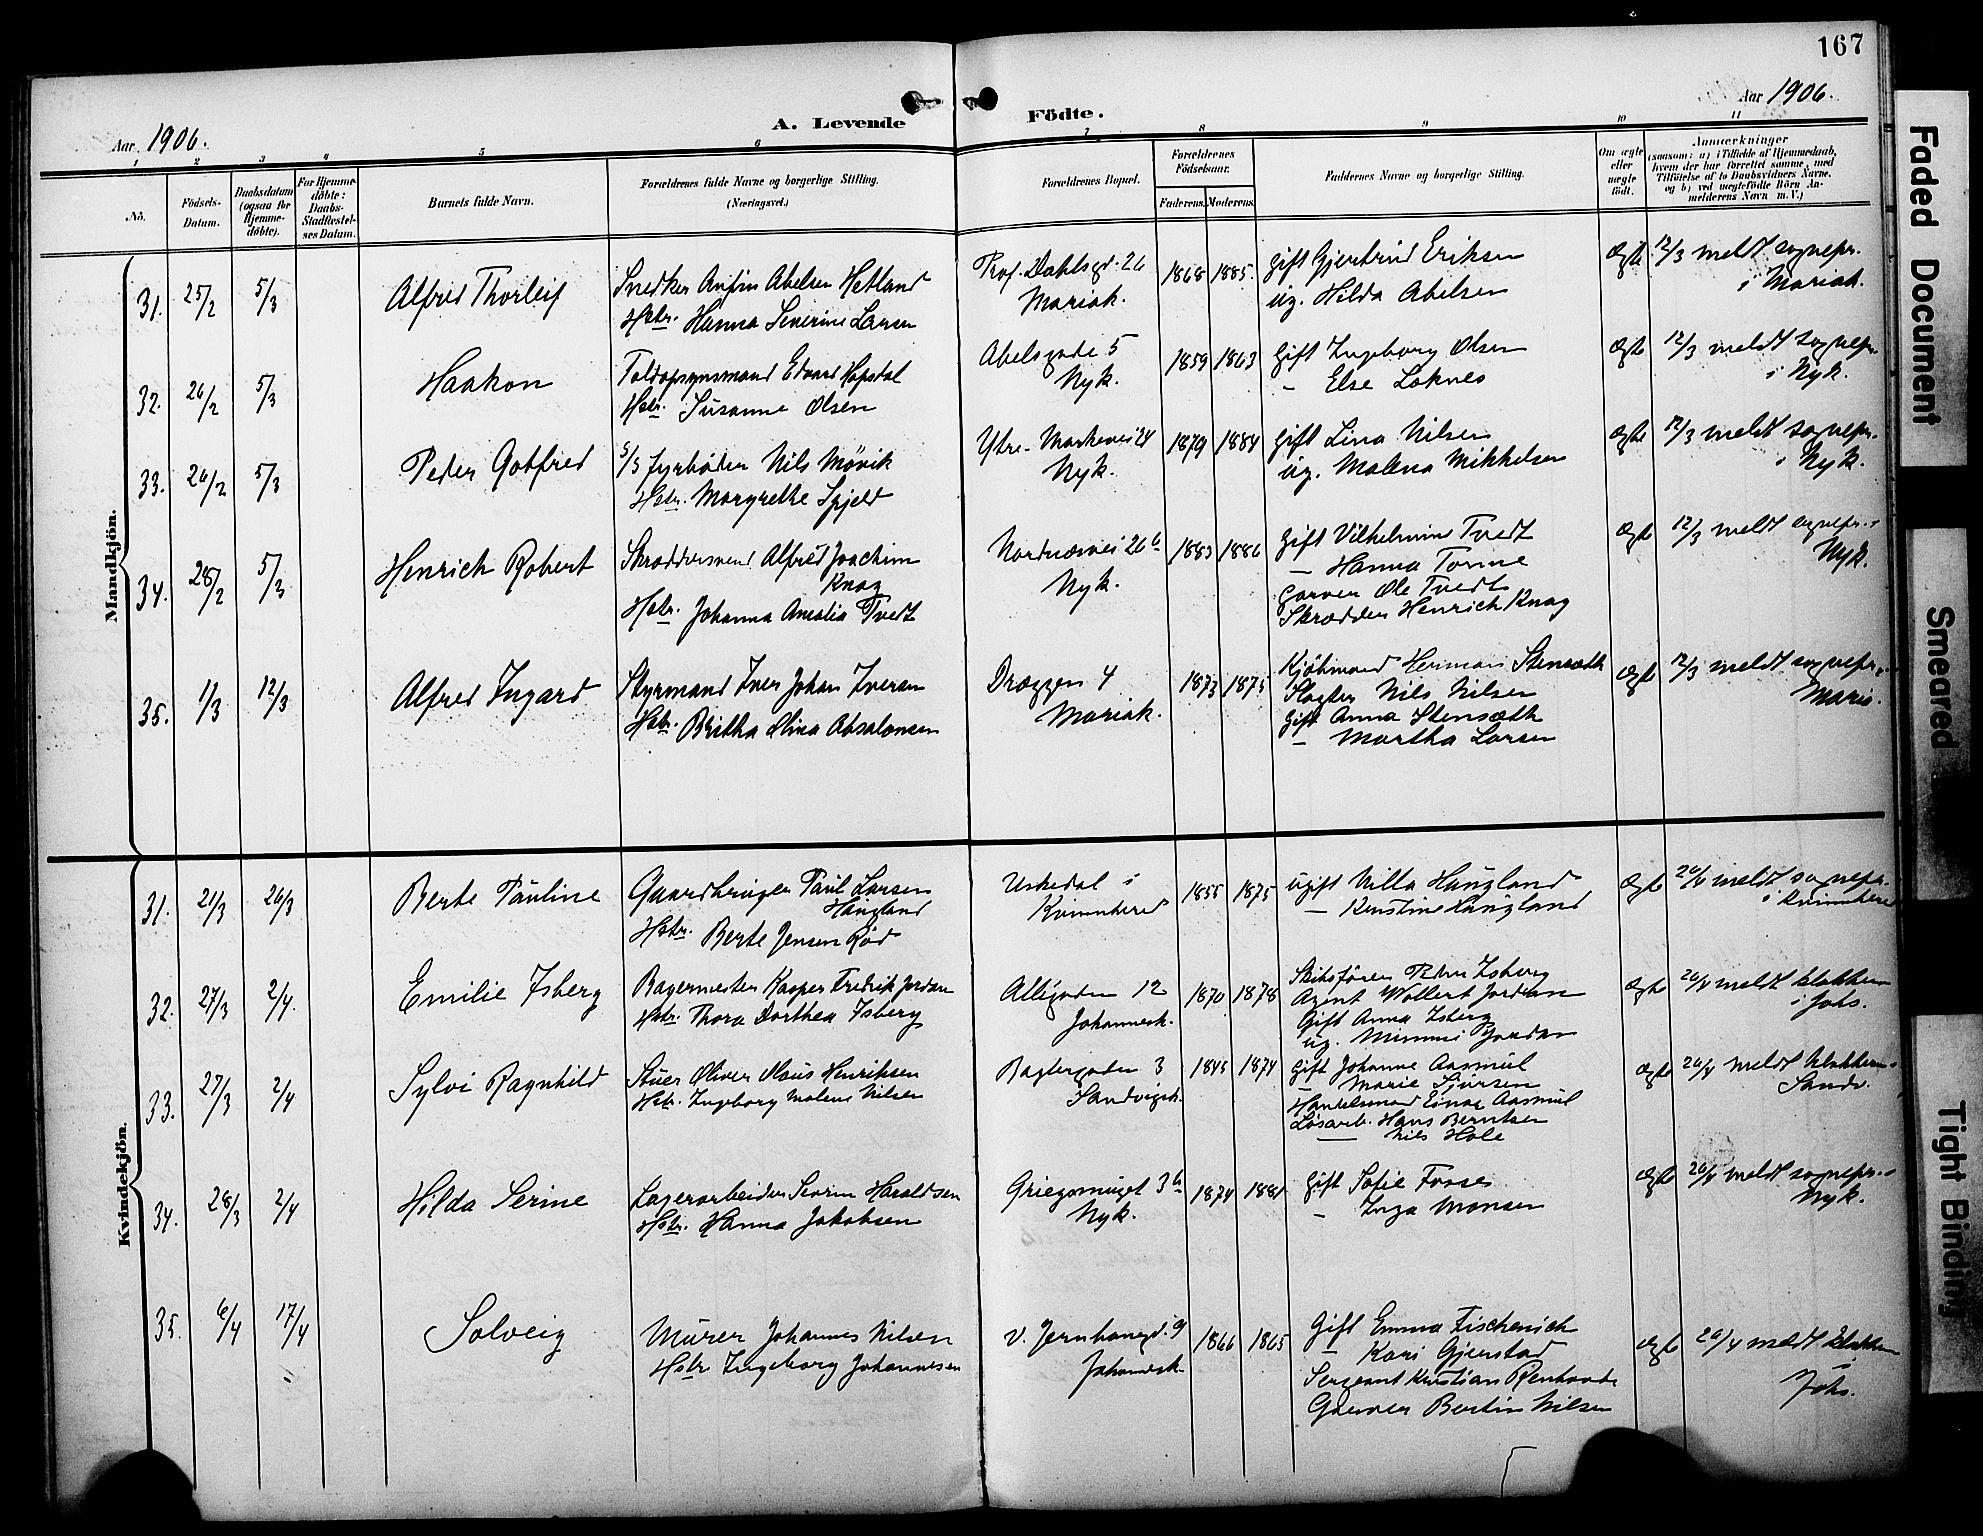 167
Aar 1906.
A. Levende
Födte.
Aar 1906.
1 2 3 4 5 6 7 8 9 10 11
No.
Födsels-
Datum.
Daabsdatum
(ogsaa for
Hjemme-
døbte).
For Hjemme-
døbte:
Daabs-
Stadfæstel-
ses Datum.
Barnets fulde Navn.
Forældrenes fulde Navne og borgerlige Stilling.
(Næringsvei.)
Forældrenes Bopæl.
Forældrenes
Födselsaar.
Faderens. Moderens.
Faddernes Navne og borgerlige Stilling.
Om ægte
eller
uægte
født.
Anmærkninger
(saasom: a) i Tilfælde af Hjemmedaab,
hvem der har forrettet samme, med
Tilföielse af to Daabsvidners Navne,
og b) ved uægtefödte Börn An-
melderens Navn m. V.)
Mandkjön.
31. 25/2 5/3 Alfred Thorleif
Snedker Anfin Abelsen Hetland
Hstr. Hanna Severine Larsen
Prof. Dahlsgd. 26
Mariak.
1868 1885.
gift Gjertrud Eriksen
ug. Hilda Abelsen
Ægte
12/3 meldt sognepr.
i Mariak.
32. 26/2 5/3 Haakon
Toldopsynsmand Edvard Hopsdal
Hstr. Susanne Olsen
Abelsgade 5
Nyk.
1859 1863
Gift Ingeborg Olsen
— Else Loknes
Ægte
12/3 meldt sognepr.
i Nyk.
33. 26/2 5/3 Peder Gotfred
S/S Fyrbøder Nils Møvik
Hstr. Margrethe Spjeld
Ytre-Markevei 24
Nyk.
1879 1884
Gift Lina Nilsen
ug. Malena Mikkelsen
Ægte
12/3 meldt sognepr.
i Nyk.
34. 28/2 5/3 Henrich Robert
Skræddersvend Alfred Joachim
Knag
Hstr. Johanna Amalia Tvedt
Nordnæsvei 26 b
Nyk.
1883 1886
Gift Vilhelmine Tvedt
— Hanna Tonne
Garver Ole Tvedt
Skrædder Henrich Knag
Ægte
12/3 meldt sognepr. i
Nyk.
35. 1/3 12/3 Alfred Ingard
Styrmand Iver Johan Iversen
Hstr. Britha Olina Absalonsen
Dræggen 4
Mariak.
1873 1875
Kjøbmand Herman Stensæth
Slagter Nils Nilsen
Gift Anna Stensæth
— Martha Larsen
Ægte
12/3 meldt sognepr. i
Maria.
Kvindekjön.
31. 21/3 26/3 Berte Pauline
Gaardbruger Paul Larsen
Haugland
Hstr. Berte Jensen Rød
Uskedal i
Kvinnhered
1855 1875
ugift Nilla Haugland
— Kristine Haugland
Ægte
20/4 meldt sognepr.
i Kvinnhered
32. 27/3 2/4. Emilie Isberg
Bagermester Kasper Fredrik Jordan
Hstr. Thora Dorthea Isberg
Allégaden 12
Johannesk.
1870 1878
Skibsfører Peder Isberg
Agent Wollert Jordan
Gift Anna Isberg
ug. Mimmi Jordan
Ægte
20/4 meldt klokkeren
i Johs.
33. 27/3 2/4 Sylvi Ragnhild
Stuer Oliver Maus Henriksen
Hstr. Ingeborg Malene Nilsen
Baglergaden 3
Sandvigsk.
1845 1874
Gift Johanne Aasmul
— Marie Sjursen
Handelsmand Einar Aasmul
Løsarb. Hans Berntsen
— Nils Hole
Ægte
20/4 meldt klokkeren i
Sandv.
34. 28/3 2/4 Hilda Serine
Lagerarbeider Severin Haraldsen
Hstr. Hanna Jakobsen
Griegsmuget 3 b
Nyk.
1874 1881
Gift Sofie Fosse
— Inga Monsen
Ægte
20/4 meldt sognepr. i
Nyk.
35. 6/4 17/4 Solveig
Murer Johannes Nilsen
Hstr Ingeborg Johannesen
V. Jernbanegd. 9
Johannesk.
1866 1865
Gift Emma Fischenich
— Kari Gjerstad
Sergeant Kristian
Garver Bertin Nilsen
Ægte
20/4 meldt klokkeren
i Johs.
Faded Document
Smeared
Tight Binding